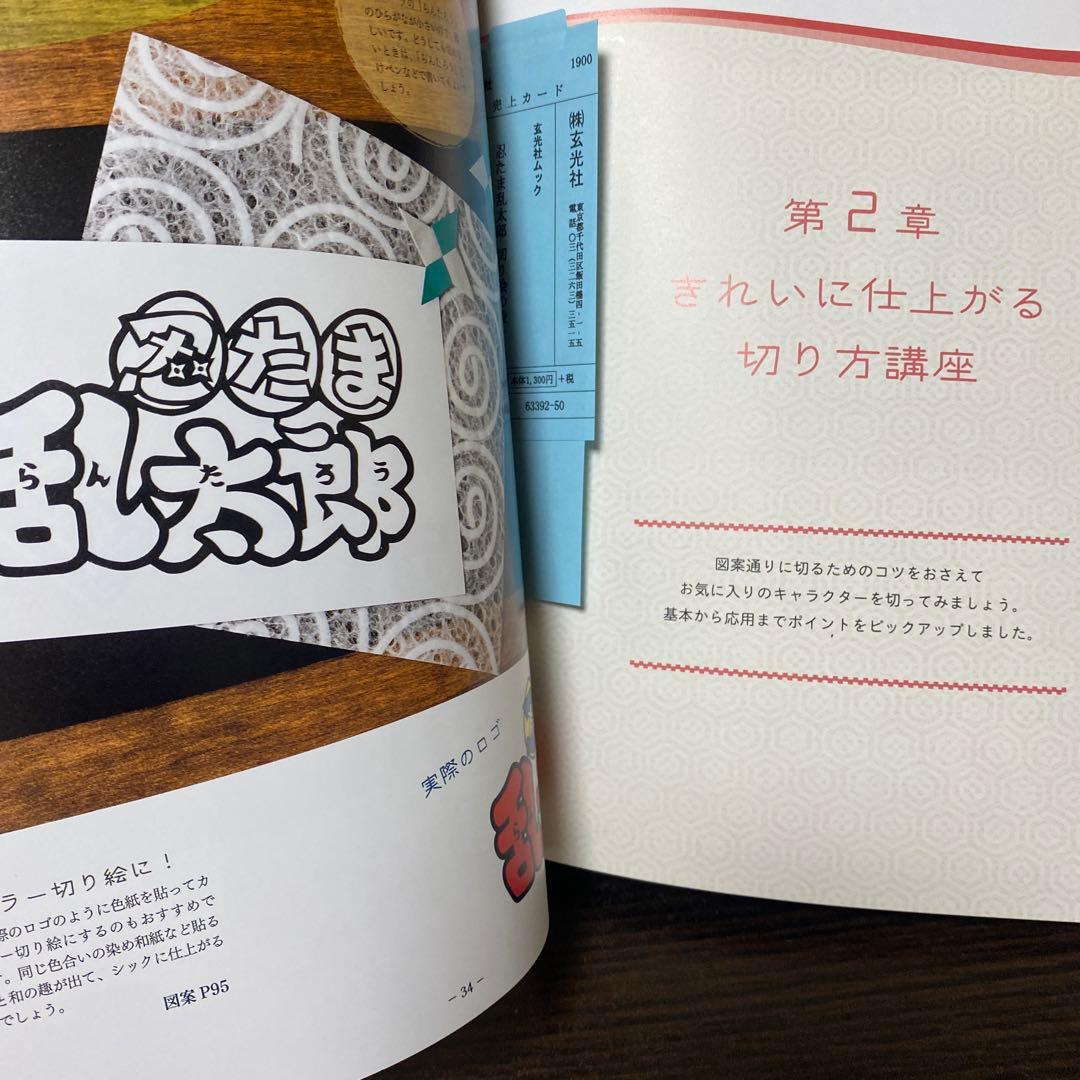 のひらがなが小さいので、難
しいです。どうしても
いときは、「らんたろう」
けペンなどで書いてもよい
しょう。
忍たま
乱太郎
らんたろう
実際のロゴ
乱
ラー切り絵に！
際のロゴのように色紙を貼ってカ
ー切り絵にするのもおすすめで
。同じ色合いの染め和紙など貼る
と和の趣が出て、シックに仕上がる
でしょう。
図案 P95
- 34 -
1900
売上カード
㈱玄光社
東京都千代田区飯田橋四-一-五
電話〇三(三二六三)三五一五
玄光社ムック
忍たま乱太郎 切り絵
本体1,300円+税
63392-50
第2章
きれいに仕上がる
切り方講座
図案通りに切るためのコツをおさえて
お気に入りのキャラクターを切ってみましょう。
基本から応用までポイントをピックアップしました。